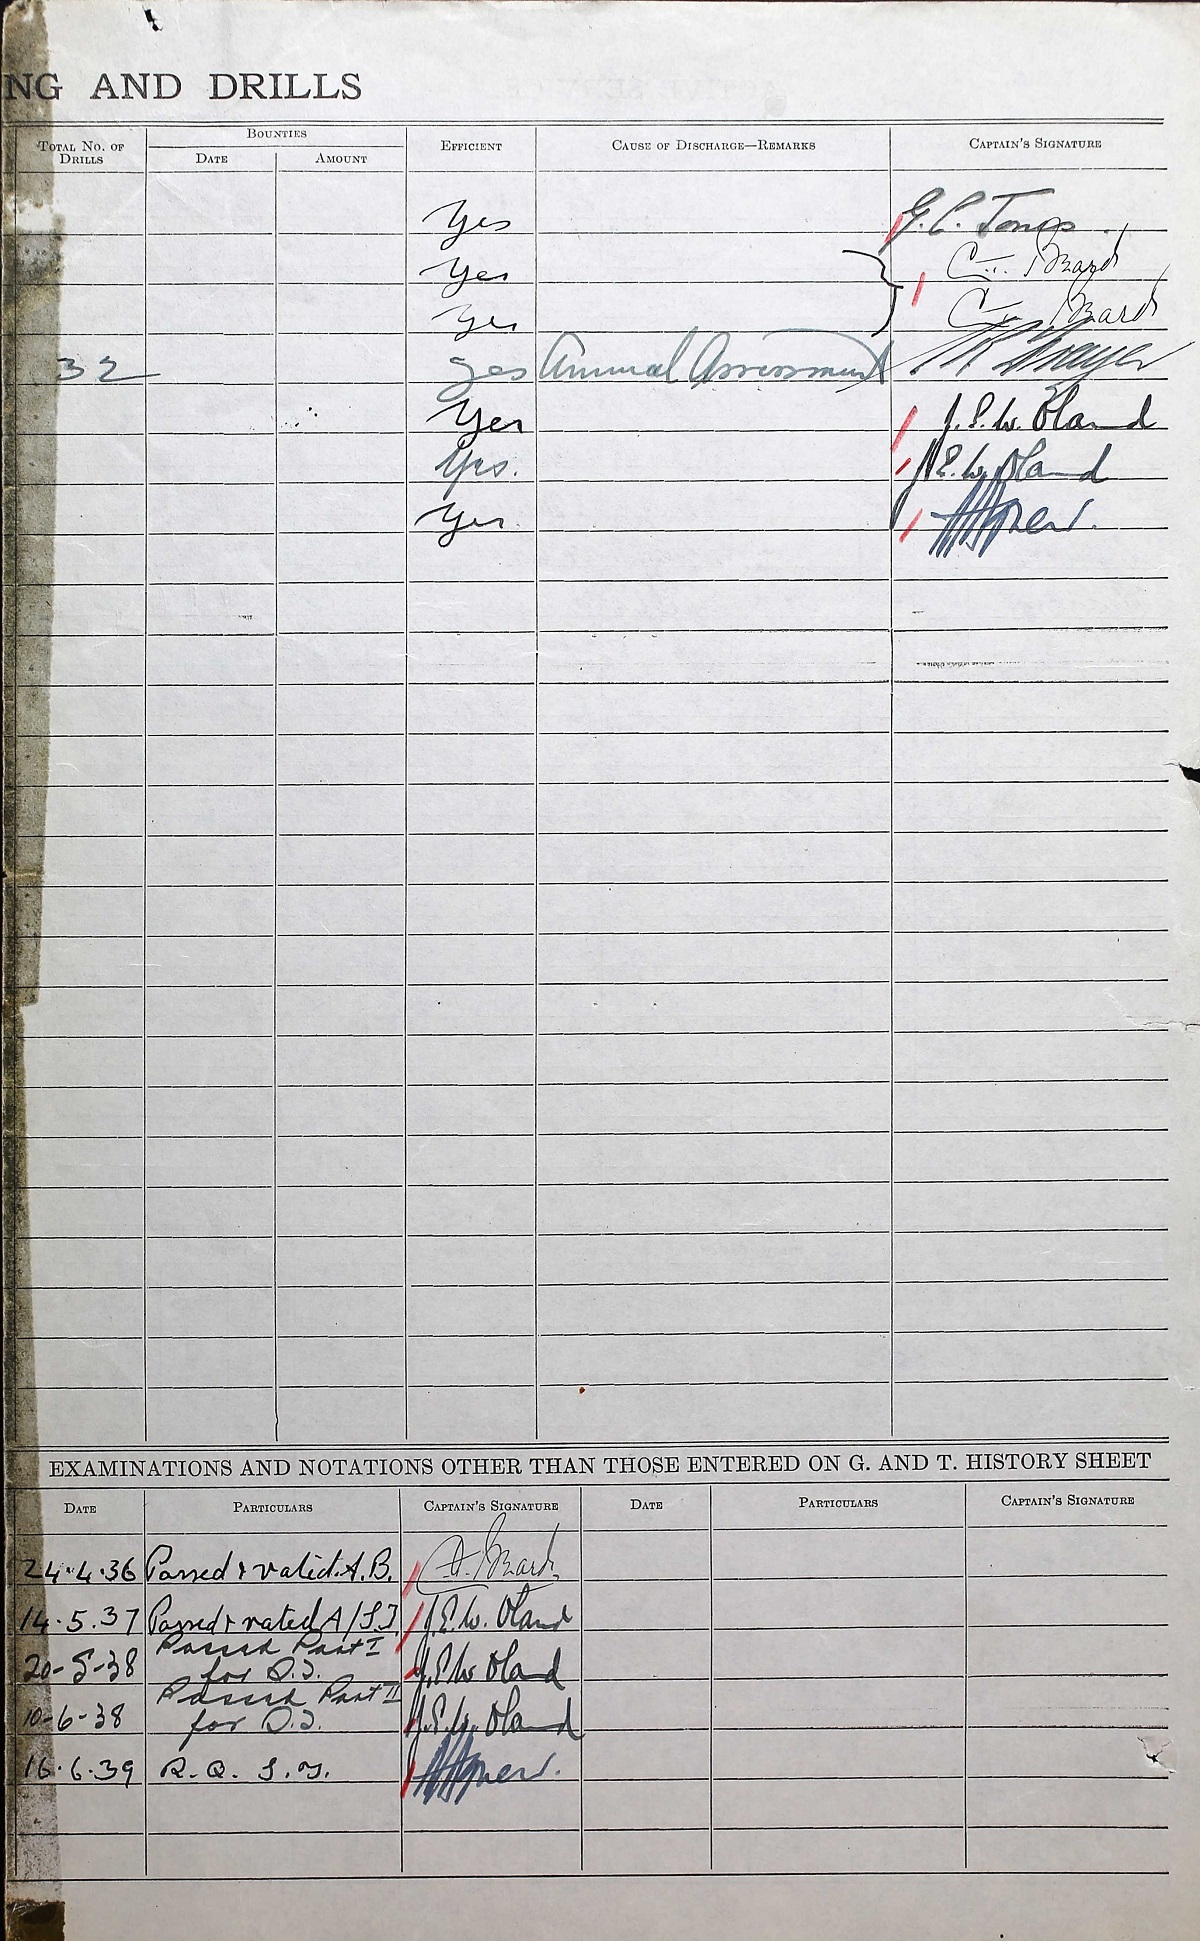 NG AND DRILLS
TOTAL NO. OF DRILLS BOUNTIES EFFICIENT CAUSE OF DISCHARGE—REMARKS CAPTAIN'S SIGNATURE
DATE AMOUNT
Yes G.C. Jones
Yes
Yes
32 yes Annual Assessment
Yes J.E.W. Oland
Yes. J.E.W. Oland
Yes
EXAMINATIONS AND NOTATIONS OTHER THAN THOSE ENTERED ON G. AND T. HISTORY SHEET
DATE PARTICULARS CAPTAIN'S SIGNATURE DATE PARTICULARS CAPTAIN'S SIGNATURE
24.4.36 Passed & rated A.B.
14.5.37 Passed & rated A/ J.E.W. Oland
Passed Part I
20-5-38 for J.E.W. Oland
Passed Part II
10-6-38 for J.E.W. Oland
16.6.39 R.Q.